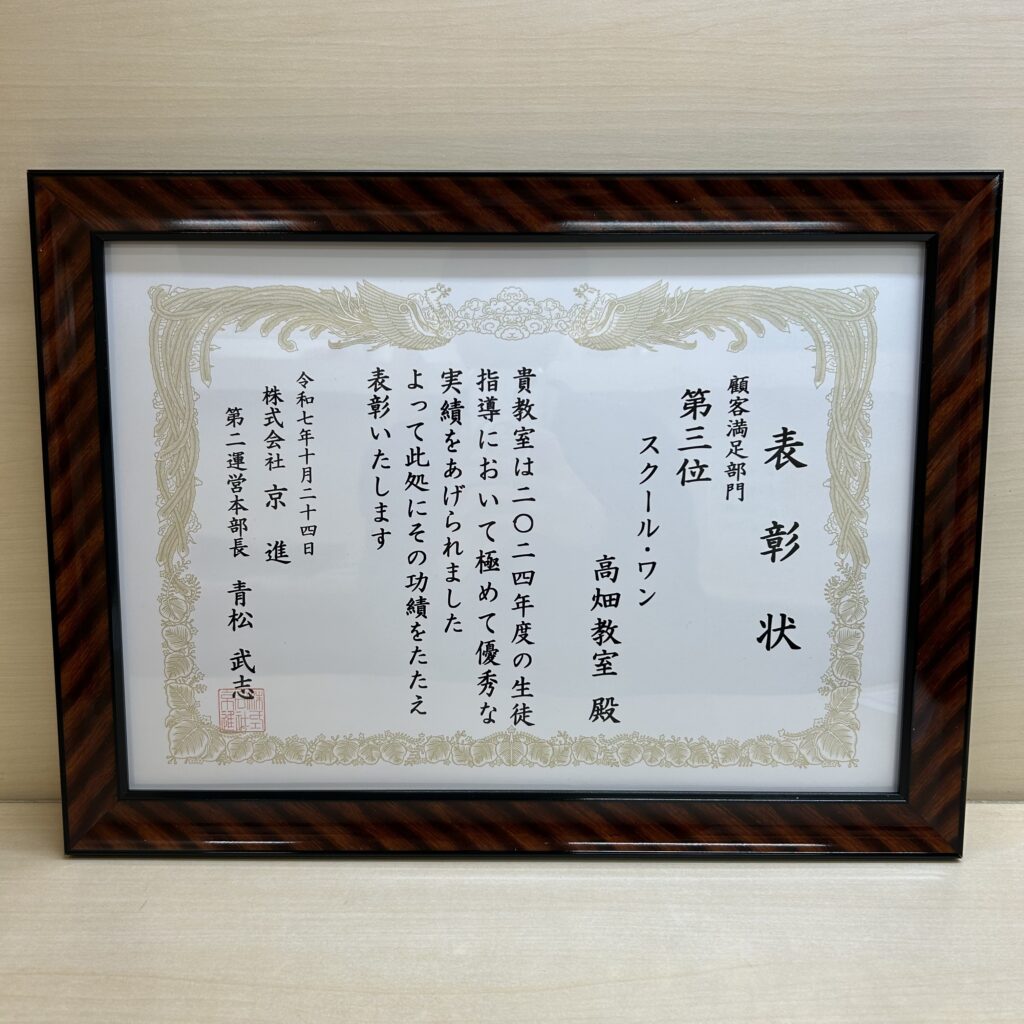 表彰状
顧客満足部門
第三位
スクール・ワン
高畑教室 殿
貴教室は二〇二四年度の生徒
指導において極めて優秀な
実績をあげられました
よって此処にその功績をたたえ
表彰いたします
令和七年十月二十四日
株式会社 京進
第二運営本部長 青松 武志